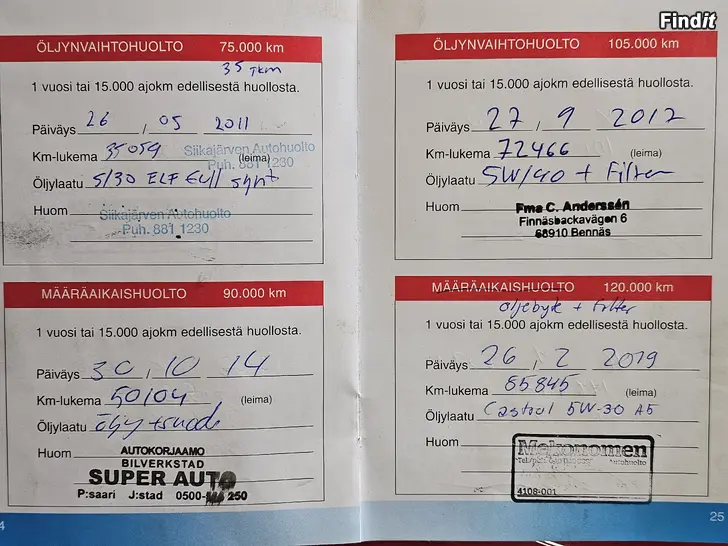 Findit
ÖLJYNVAIHTOHUOLTO 75.000 km
35 Tkm
1 vuosi tai 15.000 ajokm edellisestä huollosta.
Päiväys 26 , 05 2011
Km-lukema 35059 (leima)
Siikajärven Autohuolto
Puh. 881 1230
Öljylaatu 5/30 ELF Full synt
Huom
Siikajärven Autohuolto
Puh. 881 1230
MÄÄRÄAIKAISHUOLTO 90.000 km
1 vuosi tai 15.000 ajokm edellisestä huollosta.
Päiväys 30 , 10 14
Km-lukema 50104 (leima)
Öljylaatu öljy +suod
Huom
AUTOKORJAAMO
BILVERKSTAD
SUPER AUTO
P:saari J:stad 0500- 250
4
ÖLJYNVAIHTOHUOLTO 105.000 km
1 vuosi tai 15.000 ajokm edellisestä huollosta.
Päiväys 27 , 9 2012
Km-lukema 72466 (leima)
Öljylaatu 5W/40 + Filter
Huom
Fma C. Anderssén
Finnäsbackavägen 6
68910 Bennäs
MÄÄRÄAIKAISHUOLTO 120.000 km
oljebyte + filter
1 vuosi tai 15.000 ajokm edellisestä huollosta.
Päiväys 26 , 2 2019
Km-lukema 85845 (leima)
Öljylaatu Castrol 5W-30 A5
Huom
Mekonomen
Autohuolto
4108-001
25